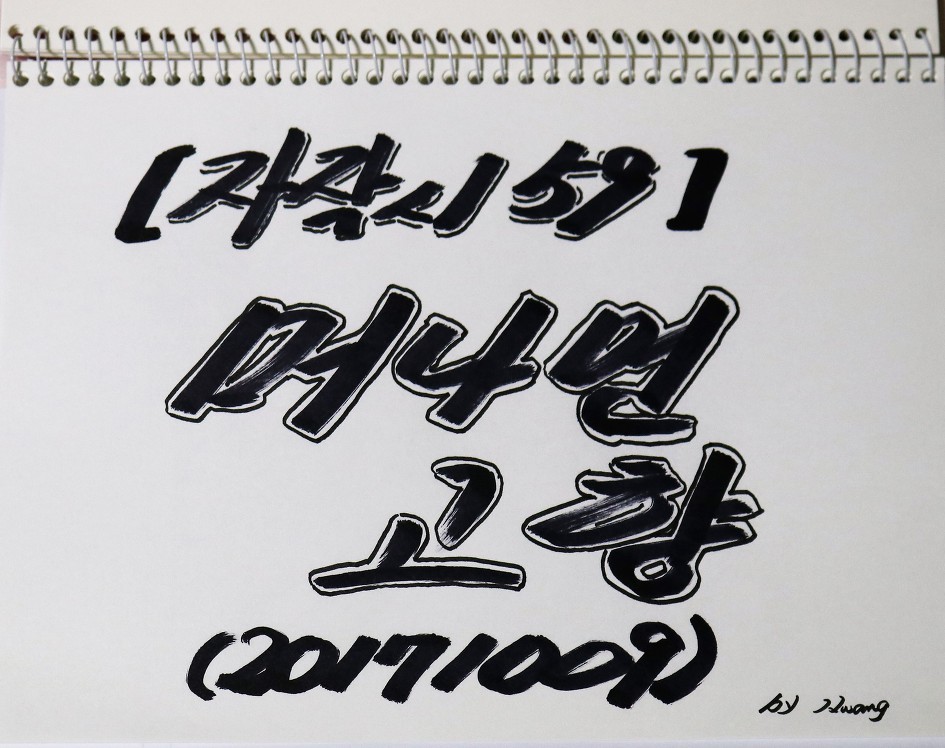 [자작시 59]
머나먼
고향
(20171009)
by Hwang